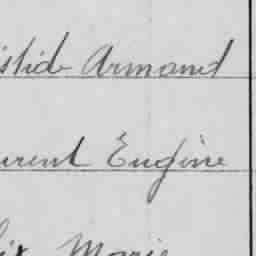 istide Armand
urent Eugène
lix Marie